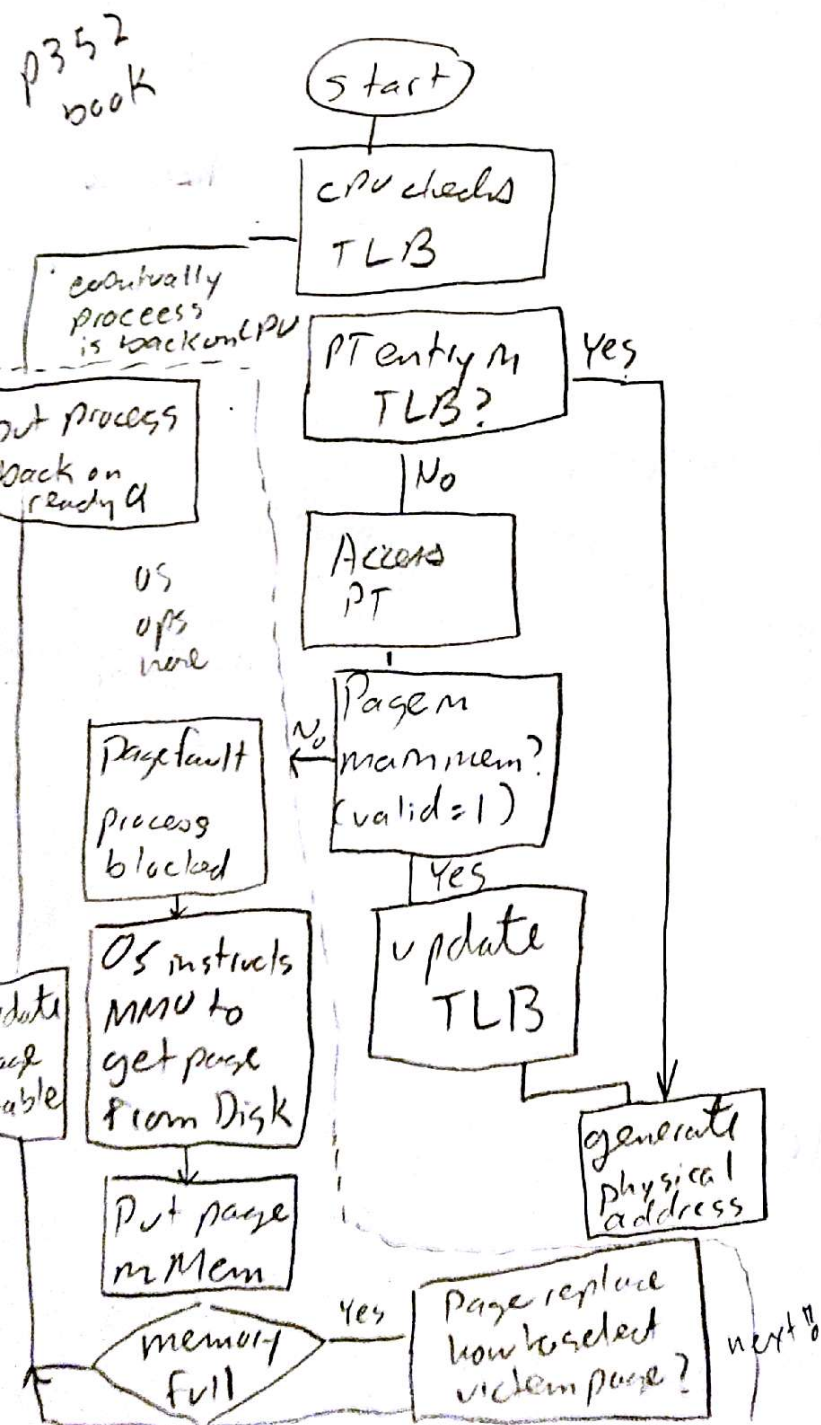 p352
book
start
CPU checks
TLB
eventually
process
is back on CPU
PT entry in
TLB?
Yes
put process
back on
ready Q
No
Access
PT
OS
ops
here
Page in
main mem?
(valid=1)
No
Page fault
process
blocked
Yes
update
TLB
OS instructs
MMU to
get page
from Disk
generate
physical
address
Put page
in Mem
memory
full
Yes
Page replace
how to select
victem page?
next!!